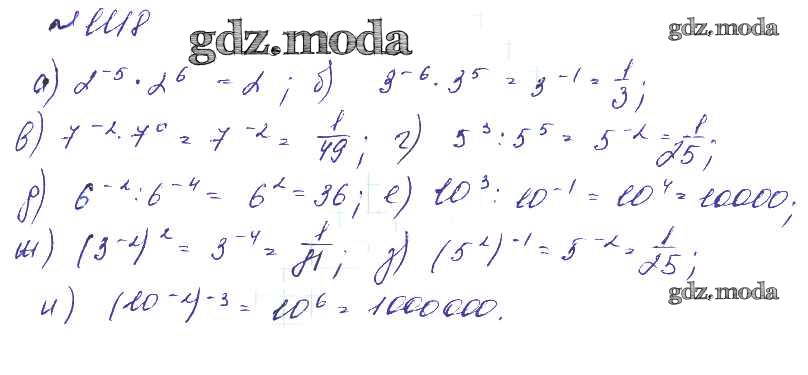 № 1118 gdz.moda gdz.moda
а) 2⁻⁵ · 2⁶ = 2 ; б) 3⁻⁶ · 3⁵ = 3⁻¹ = 1/3 ;
в) 7⁻² · 7⁰ = 7⁻² = 1/49 ; г) 5³ : 5⁵ = 5⁻² = 1/25 ;
д) 6⁻² : 6⁻⁴ = 6² = 36 ; е) 10³ : 10⁻¹ = 10⁴ = 10000 ;
ж) (3⁻²)² = 3⁻⁴ = 1/81 ; з) (5²)⁻¹ = 5⁻² = 1/25 ;
gdz.moda
и) (10⁻²)⁻³ = 10⁶ = 1000000.